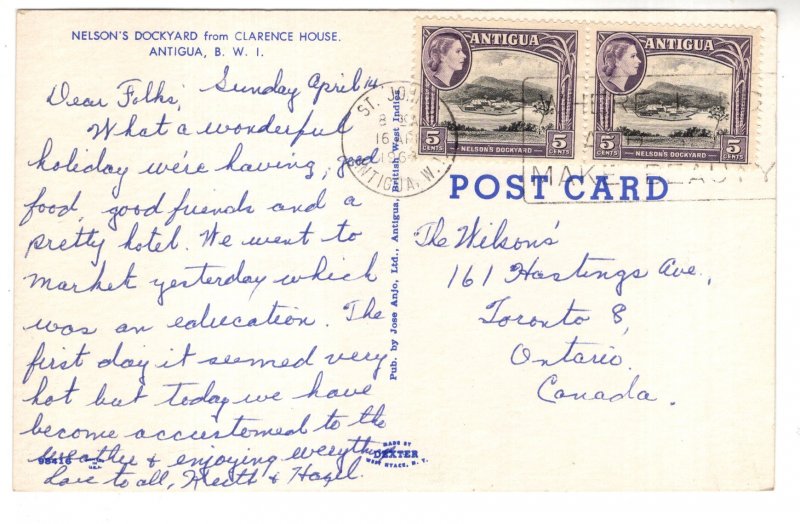 NELSON'S DOCKYARD from CLARENCE HOUSE.
ANTIGUA, B. W. I.
Sunday April 14.
Dear Folks,
What a wonderful
holiday we're having, good
food, good friends and a
pretty hotel. We went to
market yesterday which
was an education. The
first day it seemed very
hot but today we have
become accustomed to the
weather & enjoying everything
Love to all, Keith & Hazel.
98416
U.S.A.
MADE BY
DEXTER
WEST NYACK, N. Y.
Pub. by Jose Anjo, Ltd., Antigua, British West Indies
ANTIGUA
5 CENTS
NELSON'S DOCKYARD
5 CENTS
ANTIGUA
5 CENTS
NELSON'S DOCKYARD
5 CENTS
ST. JOHN
16
ANTIGUA, W. I.
WHERE
MAKE BEAUTY
POST CARD
The Wilsons'
161 Hastings Ave.,
Toronto 8,
Ontario.
Canada.